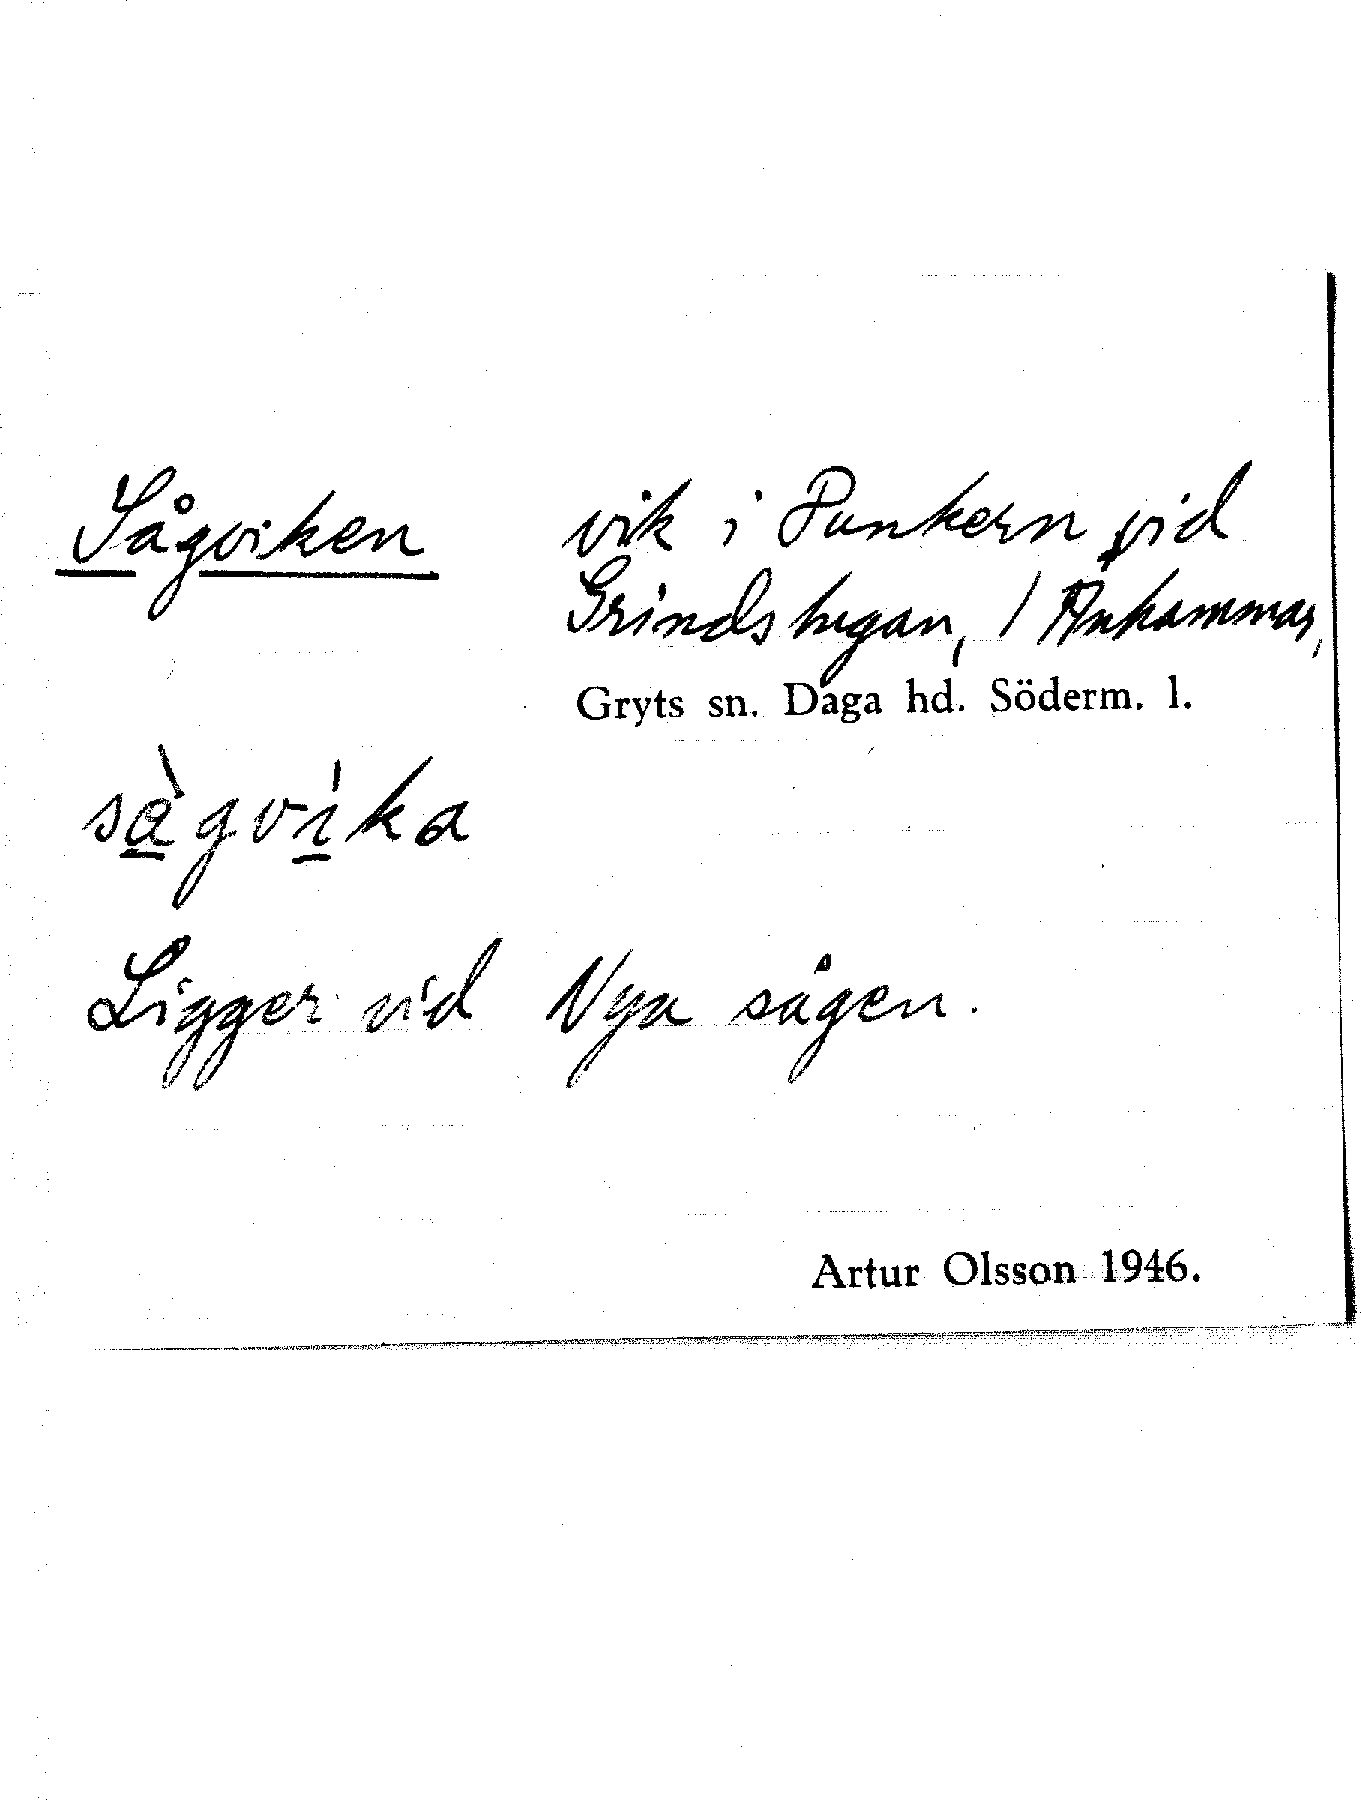 Sågviken vik i Dunkern vid
Grindstugan, / Ånhammar,
Gryts sn. Daga hd. Söderm. l.
sàgvíka
Ligger vid Nya sågen.
Artur Olsson 1946.